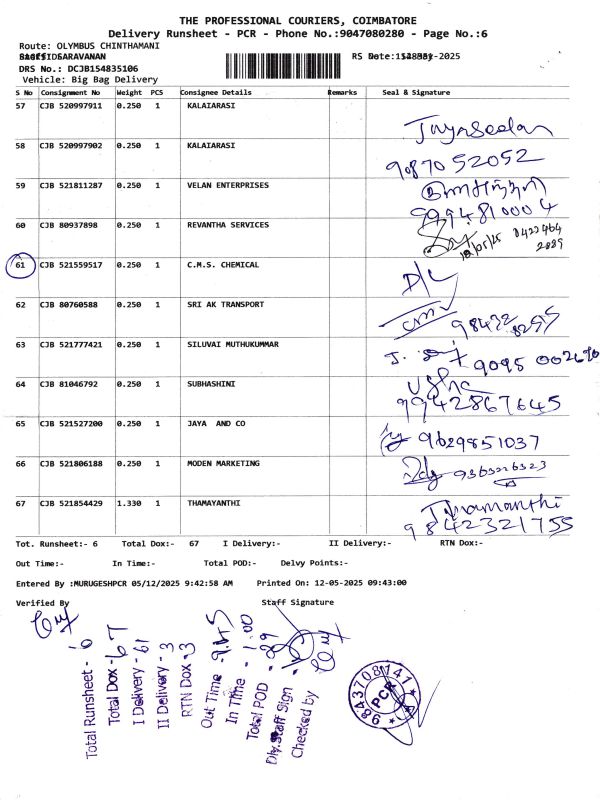 THE PROFESSIONAL COURIERS, COIMBATORE
Delivery Runsheet - PCR - Phone No.:9047080280 - Page No.:6
Route: OLYMBUS CHINTHAMANI
SARAVANAN
RS Date: -2025
DRS No.: DCJB154835106
Vehicle: Big Bag Delivery
S No Consignment No Weight PCS Consignee Details Remarks Seal & Signature
57 CJB 520997911 0.250 1 KALAIARASI
58 CJB 520997902 0.250 1 KALAIARASI
9087052052
59 CJB 521811287 0.250 1 VELAN ENTERPRISES
9994810004
60 CJB 80937898 0.250 1 REVANTHA SERVICES
0422464
2889
61 CJB 521559517 0.250 1 C.M.S. CHEMICAL D/L
62 CJB 80760588 0.250 1 SRI AK TRANSPORT
63 CJB 521777421 0.250 1 SILUVAI MUTHUKUMMAR
9095 002690
64 CJB 81046792 0.250 1 SUBHASHINI Usha
9942867645
65 CJB 521527200 0.250 1 JAYA AND CO 9629851037
66 CJB 521806188 0.250 1 MODEN MARKETING
67 CJB 521854429 1.330 1 THAMAYANTHI
9842321755
Tot. Runsheet:- 6 Total Dox:- 67 I Delivery:- II Delivery:- RTN Dox:-
Out Time:- In Time:- Total POD:- Delvy Points:-
Entered By :MURUGESHPCR 05/12/2025 9:42:58 AM Printed On: 12-05-2025 09:43:00
Verified By Staff Signature
Total Runsheet - 6
Total Dox - 67
I Delivery - 61
II Delivery - 3
RTN Dox - 3
Out Time - 9.45
In Time - 1.00
Total POD - 29
Dly.Staff Sign
Checked by
PCR